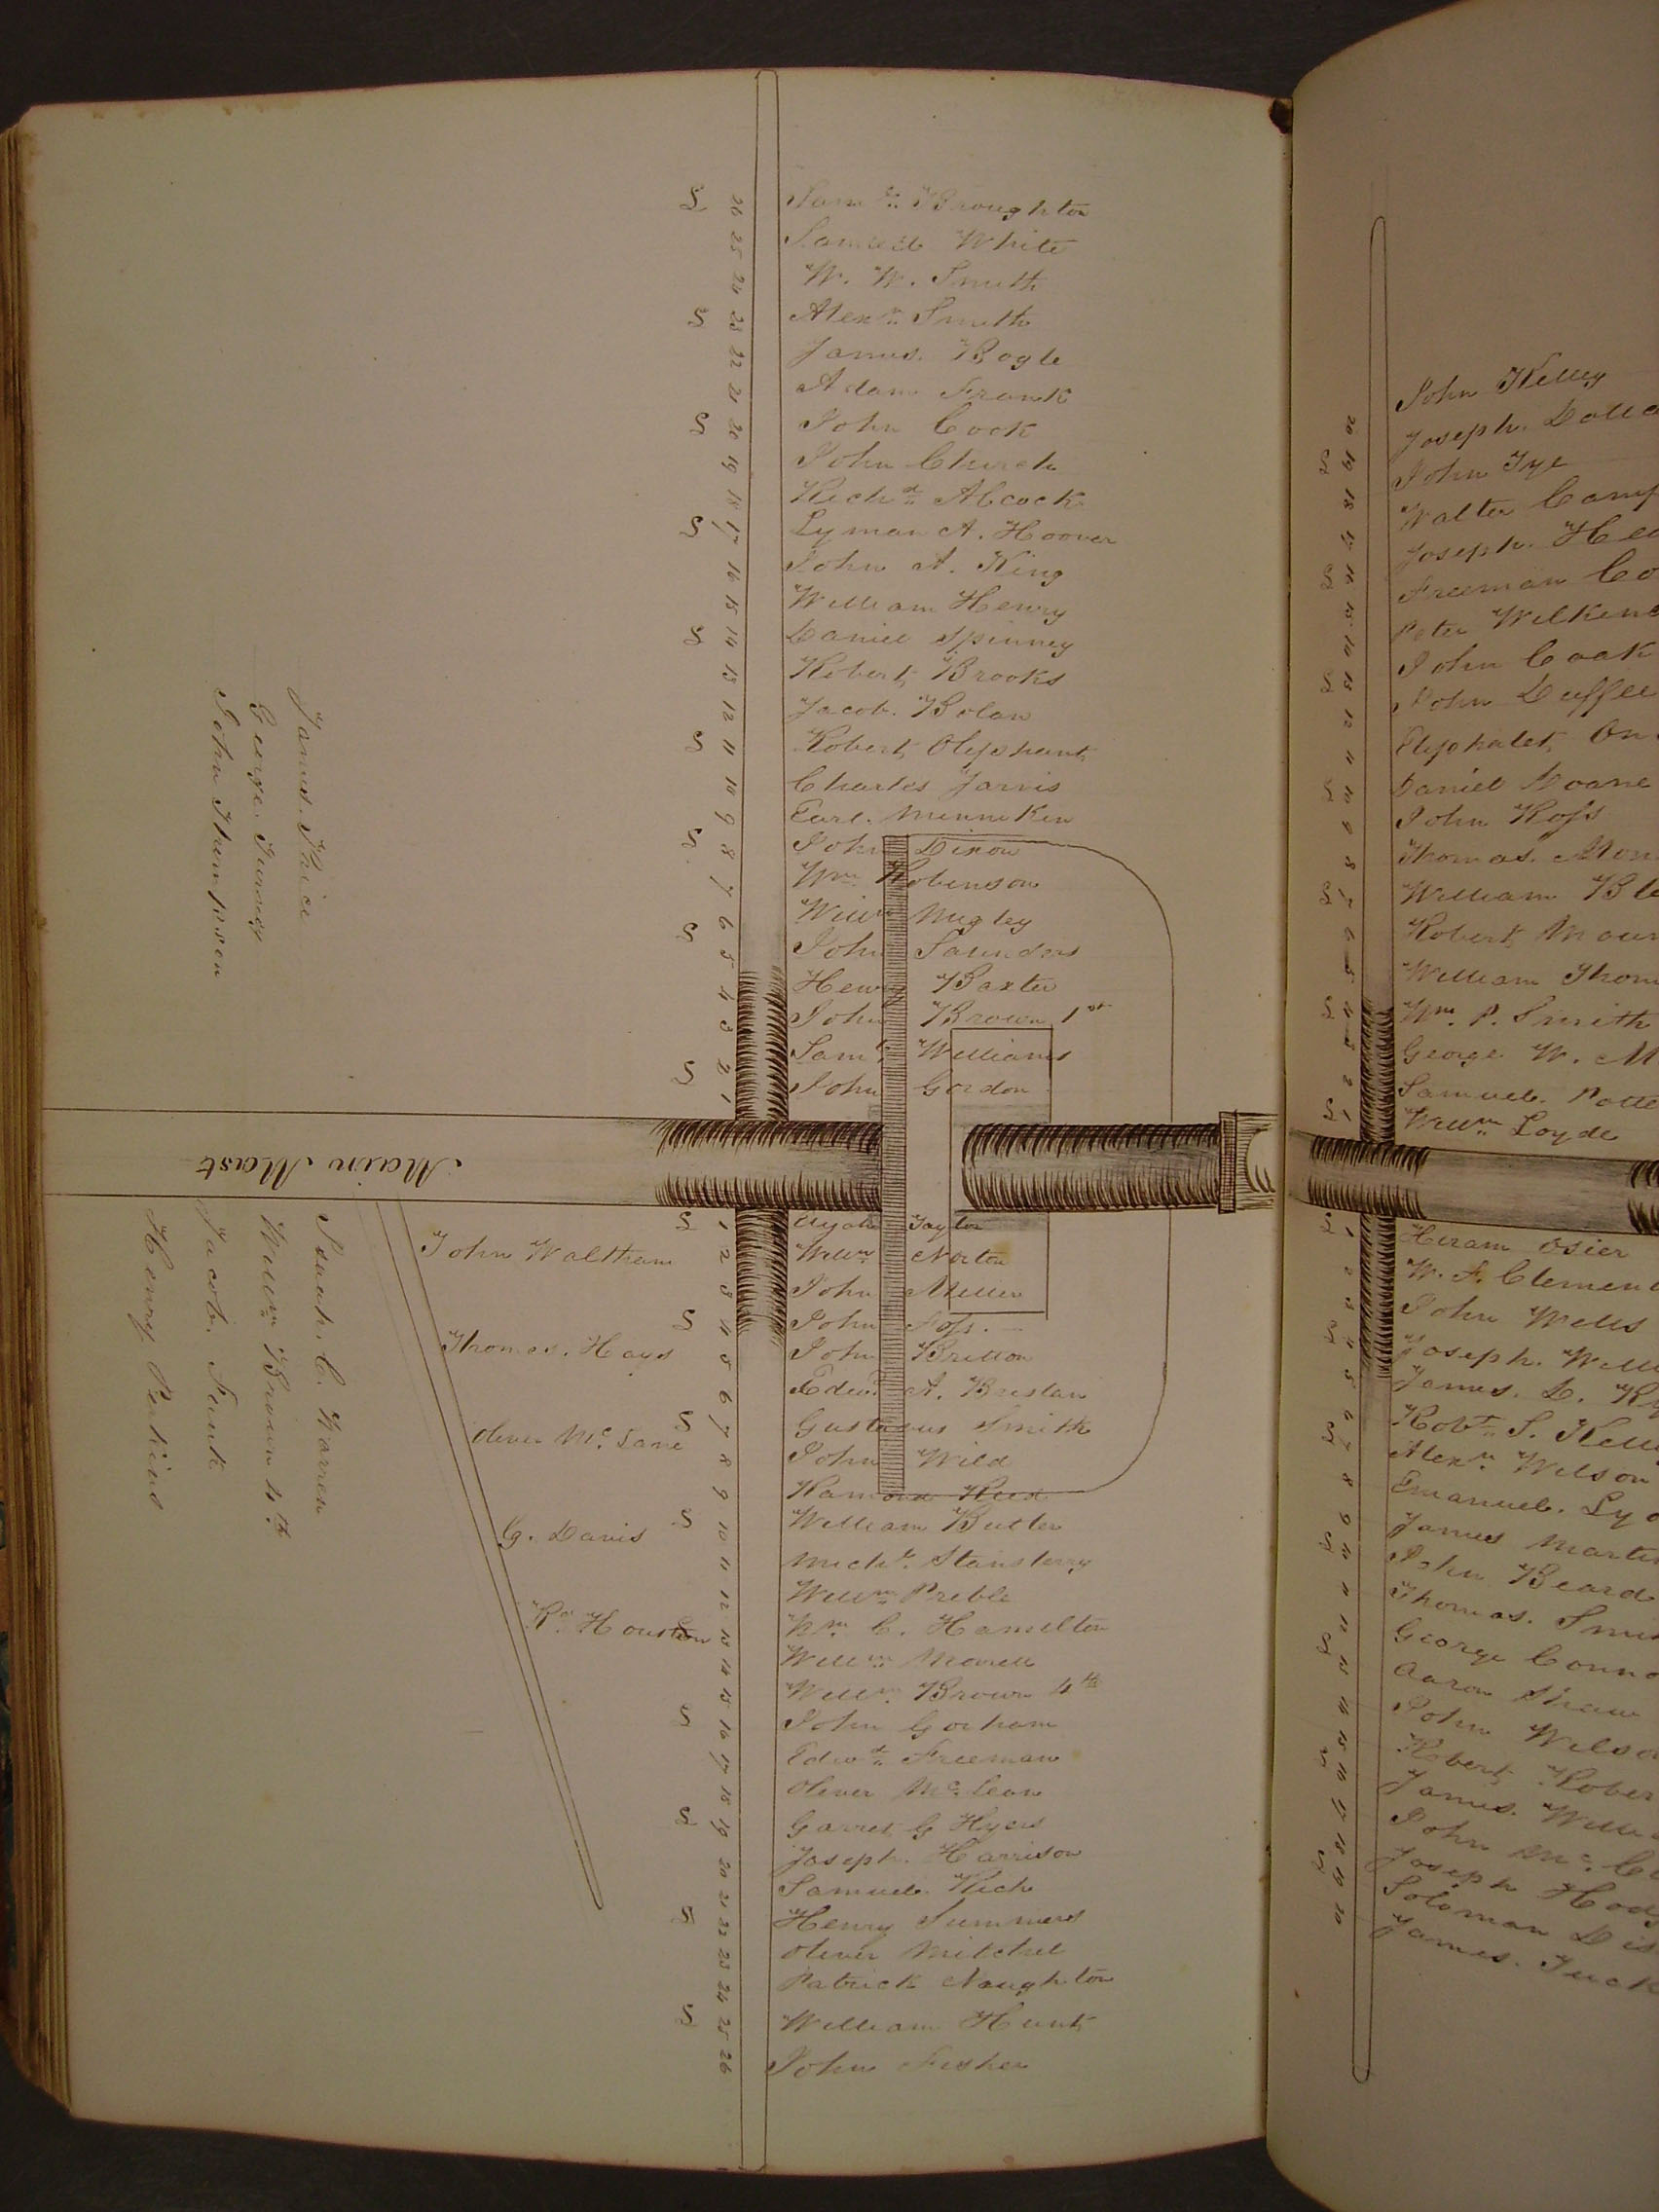 S 26 Sam^l Broughton
25 Samuel White
24 W. W. Smith
S 23 Alex^r Smith
22 James. Bogle
21 Adam Frank
S 20 John Cook
19 John Church
18 Rich^d Alcock
S 17 Lyman A. Hoover
16 John A. King
15 William Henry
S 14 Daniel Spinney
13 Robert Brooks
12 Jacob. Bolan
S 11 Robert Olyphant
10 Charles Jarvis
9 Earl. Minniken
S 8 John Dixon
7 Wm Robinson
6 Will^m Migley
S 5 John Saunders
4 Henry Baxter
3 John Brown 1st
2 Sam^l Williams
S 1 John Gordon
James. Price
George. Turney
John Thompson
Main Mast
S 1 Taylor
2 Will^m Norton
3 John Miller
S 4 John Foss.
5 John Britton
6 Edw^d A. Breslan
S 7 Gustavus Smith
8 John Wild
9 Hamond Reed
S 10 William Butler
11 Mich^l Stansberry
12 Will^m Preble
S 13 Wm C. Hamilton
14 Will^m Morell
15 Will^m Brown 4th
S 16 John Gorham
17 Edw^d Freeman
18 Oliver McLean
S 19 Garret G Hyers
20 Joseph. Harrison
21 Samuel. Rich
S 22 Henry Summers
23 Oliver Mitchel
24 Patrick Naughton
S 25 William Hunt
26 John Fisher
John Waltham
Thomas. Hays
Oliver Mc Lane
G. Davis
R^d Houston
Isaiah. C. Warren
Will^m Brown 4th
Jacob. Funk
Henry Perkins
John Kelley
20 Joseph.
S 19 John Tye
18 Walter
17 Joseph.
S 16 Freeman
15 Peter
14 John Cook
S 13 John Duffee
12 Elyphalet
11 Daniel Doane
S 10 John Ross
9 Thomas.
8 William
S 7 Robert
6 William
5 Wm. P. Smith
S 4 George W.
3 Samuel.
2 Will^m Loyde
S 1
S 1 Hiram Osier
2 W. F.
3 John Wells
S 4 Joseph.
5 James. D.
6 Rob^t S.
S 7 Alex^r Wilson
8 Emanuel.
9 James
S 10 John Beard
11 Thomas.
12 George
S 13 Aaron Shaw
14 John
15 Robert
S 16 James.
17 John
18 Joseph
S 19 Soloman
20 James.